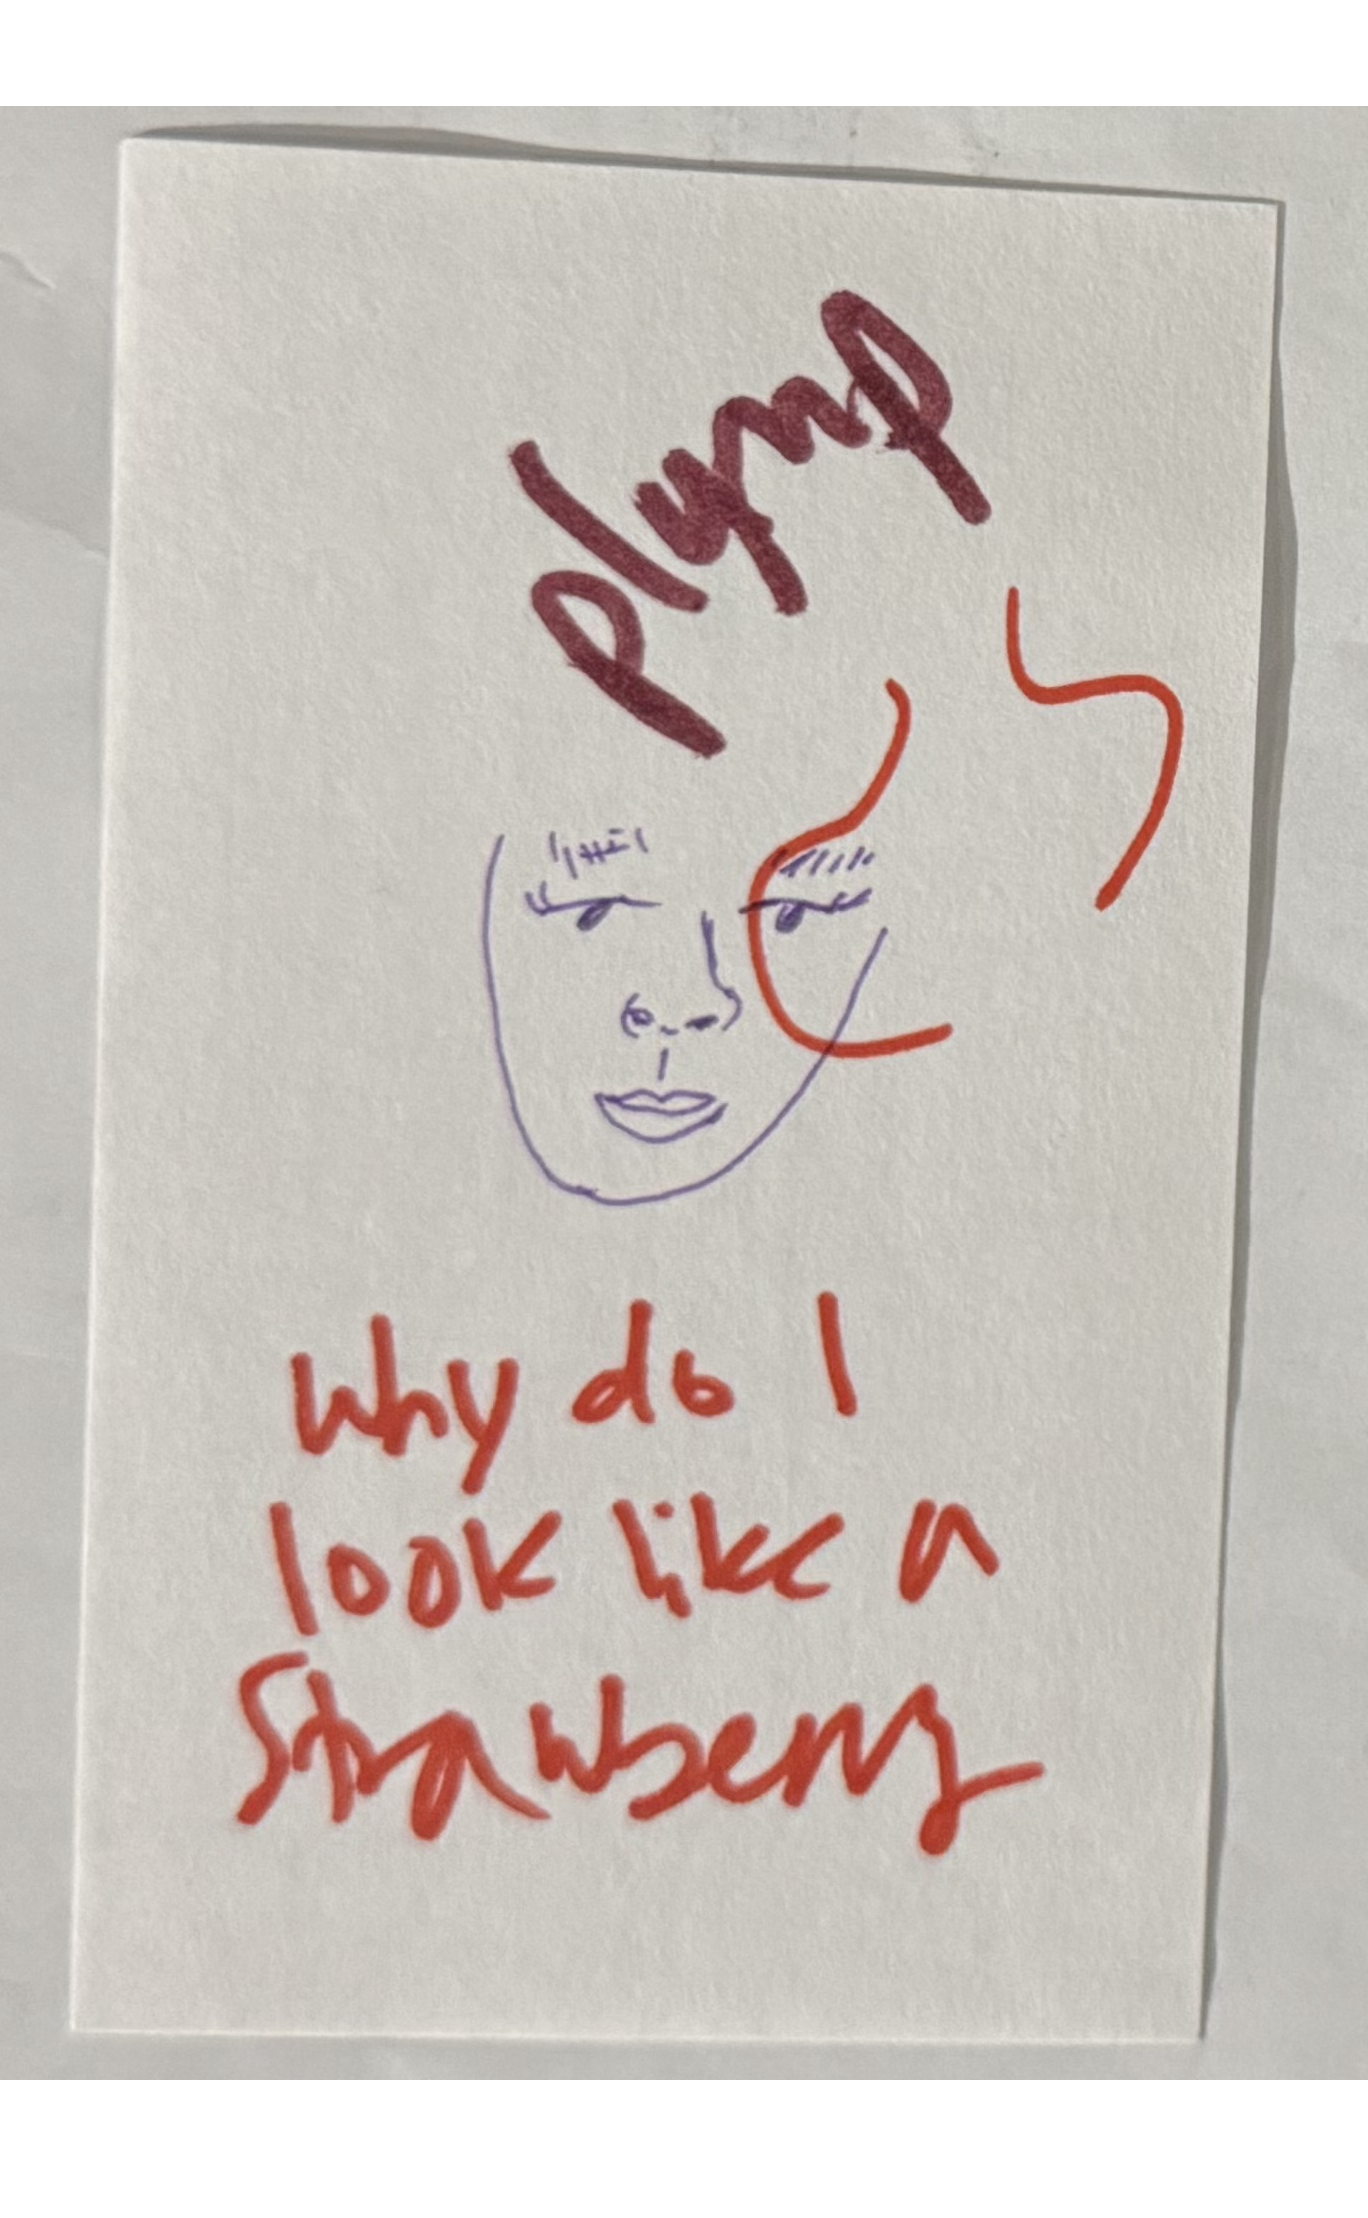 plymp
why do I
look like a
Strawberry